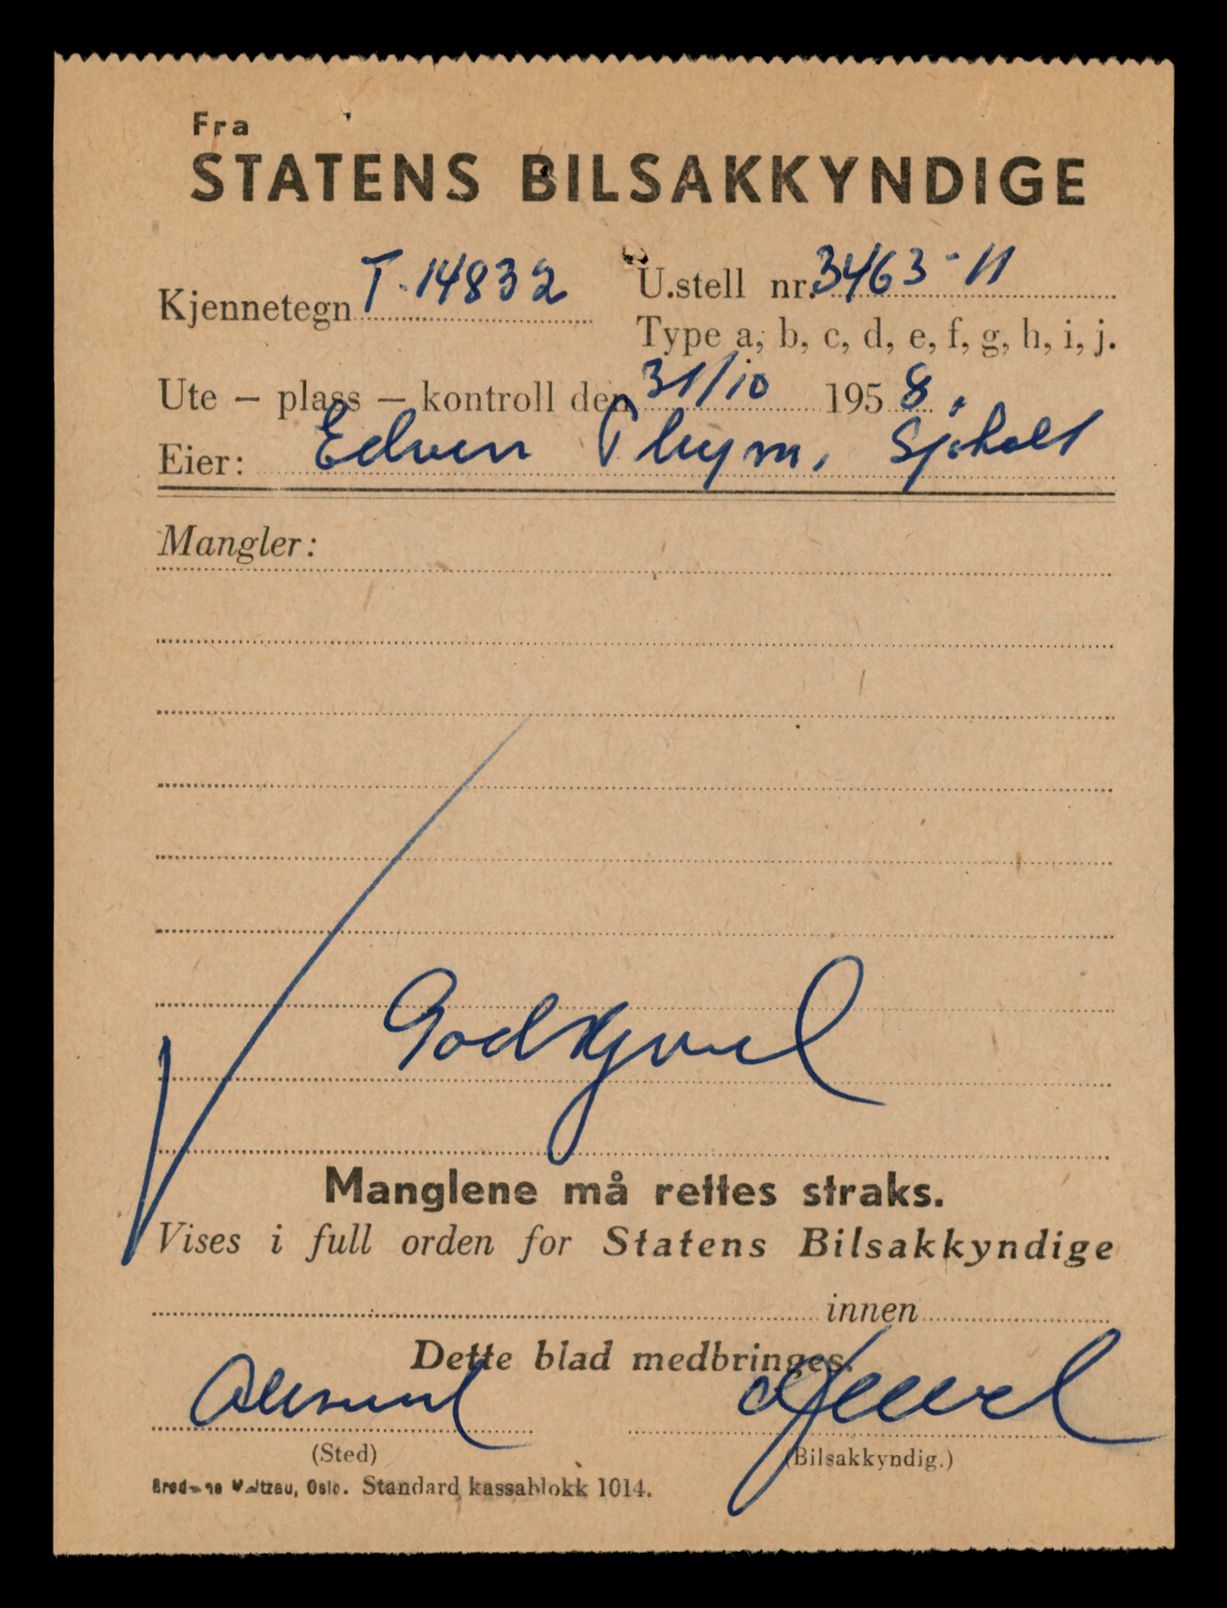 Fra
STATENS BILSAKKYNDIGE
Kjennetegn T-14832 U.stell nr. 3463-11
Type a, b, c, d, e, f, g, h, i, j.
Ute – plass – kontroll den 31/10 1958.
Eier: Edvin Thym, Sjøholt
Mangler:
Godkjend
Manglene må rettes straks.
Vises i full orden for Statens Bilsakkyndige
innen
Dette blad medbringes.
Ålesund
(Sted) (Bilsakkyndig.)
Standard kassablokk 1014.